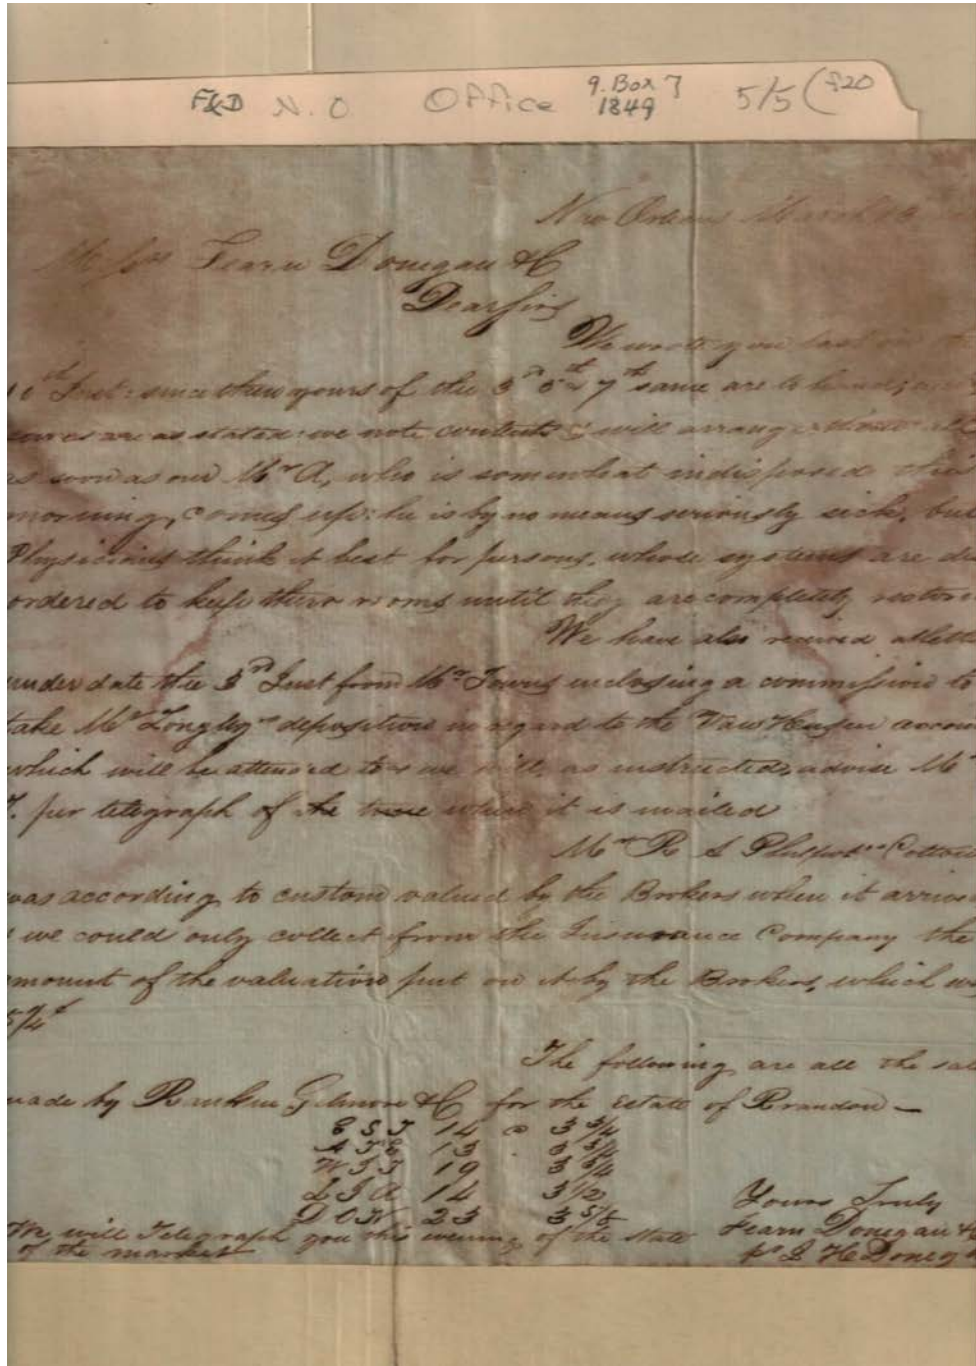 F&D N. O. Office 9. Box 7 1849 5/5 (f20
New Orleans March
Messrs Fearn Donegan & C
Dear Sirs
We wrote you last on the
10th Inst: since then yours of the 3rd 5th & 7th same are to hand,
are as stated: we note contents & will arrange
as soon as our Mr A, who is somewhat indisposed this
morning, comes up: he is by no means seriously sick, but
Physicians think it best for persons, whose systems are dis
ordered to keep their rooms until they are completely restore
We have also received a lette
under date the 3rd Inst from Mr Towns enclosing a commission to
take Mr Longleys deposition in regard to the Van Hagen accoun
which will be attended to & we will, as instructed, advise Mr
T. per telegraph of the time when it is mailed
Mr R S Philpots Cotton
was according to custom valued by the Brokers when it arrive
& we could only collect from the Insurance Company the
amount of the valuation put on it by the Brokers, which w
The following are all the sal
made by Rankin Gilmore & C for the Estate of Brandon —
14 @ 3 3/4
13 . 3 3/4
19 3 3/4
14 3 1/2
23 3 5/8
We will Telegraph you this evening of the state
of the market
Yours Truly
Fearn Donegan &
pr Doneg